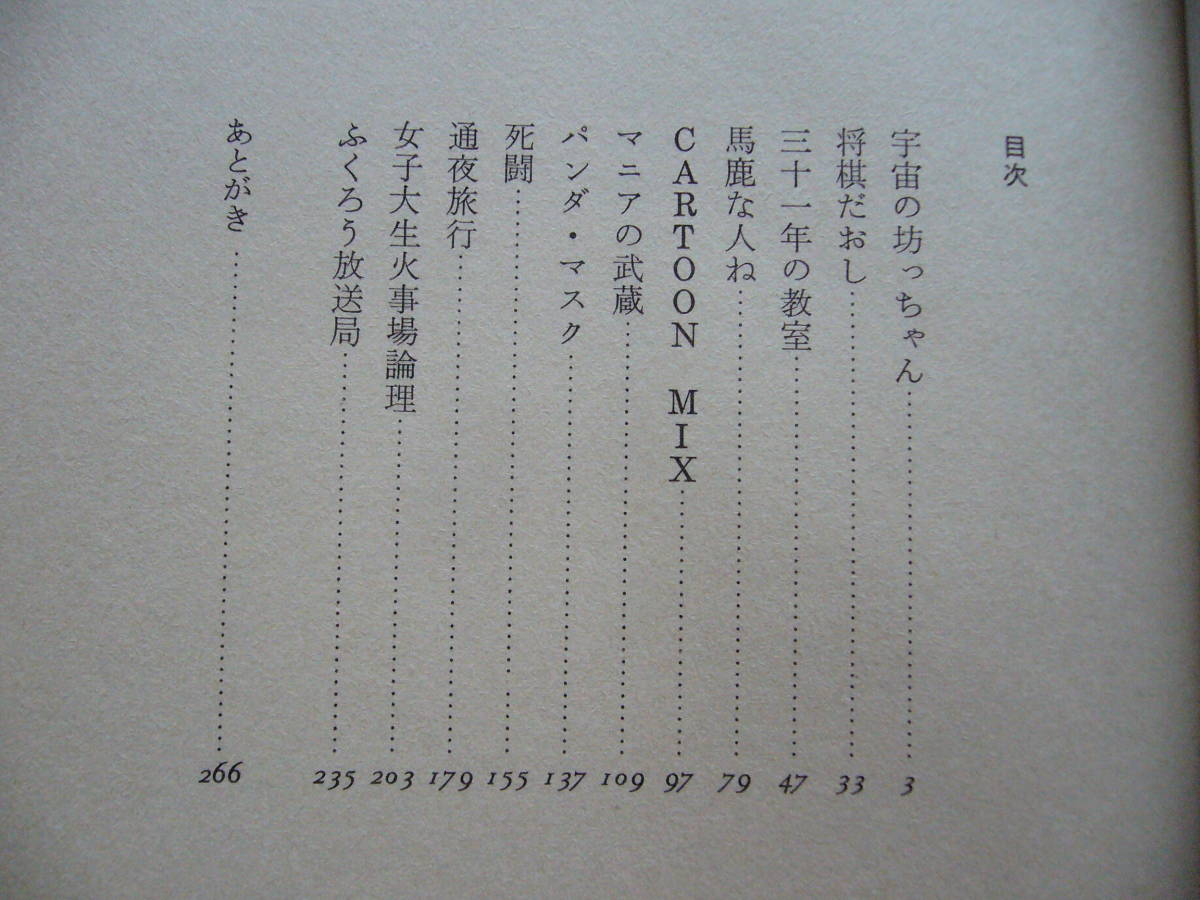 目次
宇宙の坊っちゃん……………………3
将棋だおし……………………33
三十一年の教室……………………47
馬鹿な人ね……………………79
CARTOON MIX……………………97
マニアの武蔵……………………109
パンダ・マスク……………………137
死闘……………………155
通夜旅行……………………179
女子大生火事場論理……………………203
ふくろう放送局……………………235
あとがき……………………266